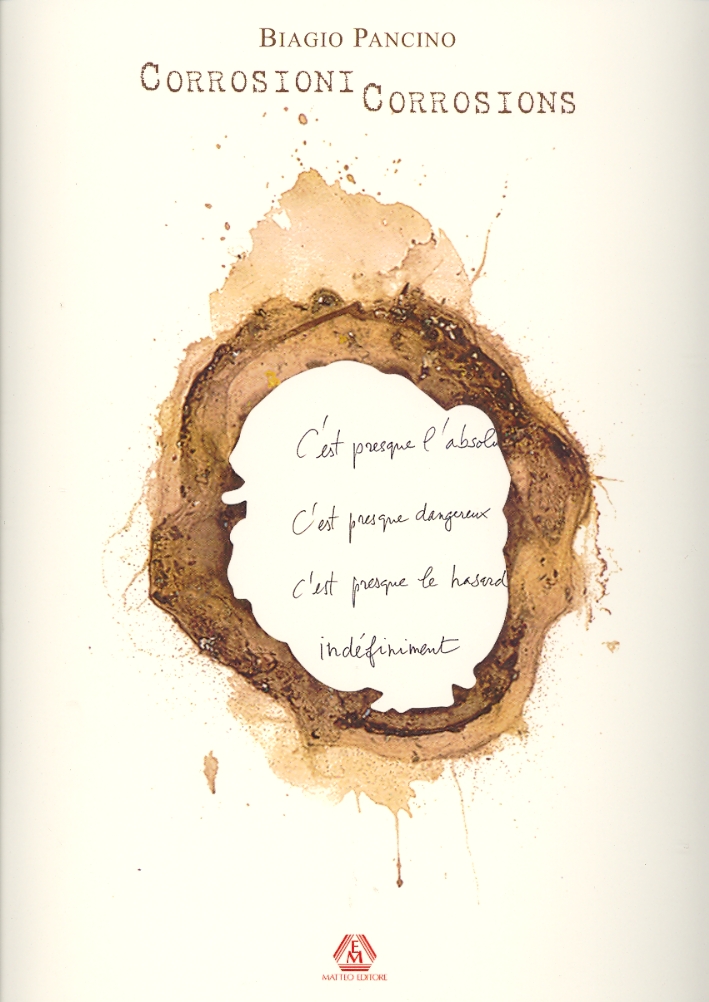 BIAGIO PANCINO
CORROSIONI
CORROSIONS
C'est presque l'absolu
C'est presque dangereux
c'est presque le hasard
indéfiniment
EM
MATTEO EDITORE